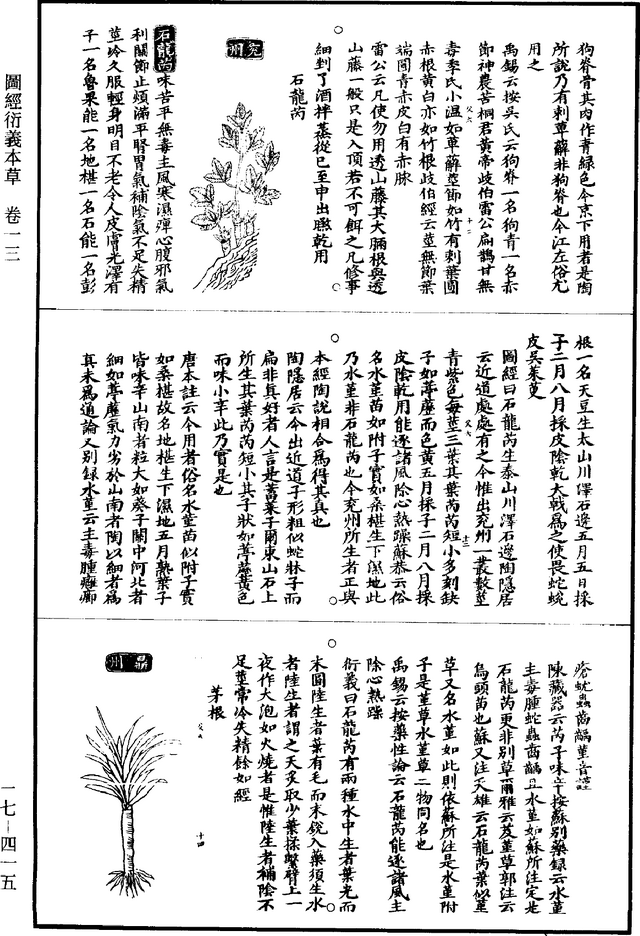 圖經衍義本草　卷一三
狗脊骨其肉作青綠色今京下用者是陶
所說乃有刺萆薢非狗脊也今江左俗尤
用之
禹錫云按吳氏云狗脊一名狗青一名赤
節神農苦桐君黃帝歧伯雷公扁鵲甘無
毒季氏小溫如萆薢莖節如竹有刺葉圓
赤根黃白亦如竹根歧伯經云莖無節葉
端圓青赤皮白有赤脉
雷公云凡使勿用透山藤其大腸根與透
山藤一般只是入頂苦不可餌之凡修事
細剉了酒拌蒸從巳至申出㬠乾用
石龍芮
兗州
石龍芮味苦平無毒主風寒濕痺心腹邪氣
利關節止煩滿平腎胃氣補陰氣不足失精
莖冷久服輕身明目不老令人皮膚光澤有
子一名魯果能一名地椹一名石能一名彭
根一名天豆生太山川澤石邊五月五日採
子二月八月採皮陰乾大戟為之使畏蛇蛻
皮吳茱萸
圖經曰石龍芮生泰山川澤石邊陶隱居
云近道處處有之今惟出兗州一叢數莖
青紫色每莖三葉其葉芮芮短小多刻缺
子如葶藶而色黃五月採子二月八月採
皮陰乾用能逐諸風除心熱躁蘇恭云俗
名水堇苗如附子實如桑椹生下濕地此
乃水堇非石龍芮也今兗州所生者正與
本經陶說相合為得其真也
陶隱居云今出近道子形粗似蛇牀子而
扁非真好者人言是蓄菜子爾東山石上
所生其葉芮芮短小其子狀如葶藶黃色
而味小辛此乃實是也
唐本註云今用者俗名水堇苗似附子實
如桑椹故名地椹生下濕地五月熟葉子
皆味辛山南者粒大如葵子關中河北者
細如葶藶氣力劣於山南者陶以細者為
真未為通論又別錄水堇云主毒腫癰癤
瘡蚘蟲齒齲堇音謹
陳藏器云芮子味辛按蘇別藥錄云水堇
主毒腫蛇蟲齒齲且水堇如蘇所注定是
石龍芮更非別草爾雅云芨堇草郭注云
烏頭苗也蘇又注天雄云石龍芮葉似堇
草又名水堇如此則依蘇所注是水堇附
子是堇草水堇草二物同名也
禹錫云按藥性論云石龍芮能逐諸風主
除心熱躁
衍義曰石龍芮有兩種水中生者葉光而
末圓陸生者葉有毛而末銳入藥須生水
者陸生者謂之天灸取少葉揉繫臂上一
夜作大泡如火燒者是惟陸生者補陰不
足莖常冷失精餘如經
茅根
鼎州
一七—四一五